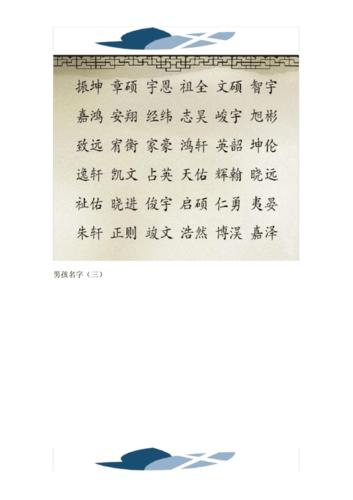 振坤 章硕 宇恩 祖全 文硕 智宇
嘉鸿 安翔 经纬 志昊 峻宇 旭彬
致远 宥衡 家豪 鸿轩 英韶 坤伦
逸轩 凯文 占英 天佑 辉翰 晓远
祉佑 晓进 俊宇 启硕 仁勇 夷晏
朱轩 正则 竣文 浩然 博淏 嘉泽
男孩名字（三）